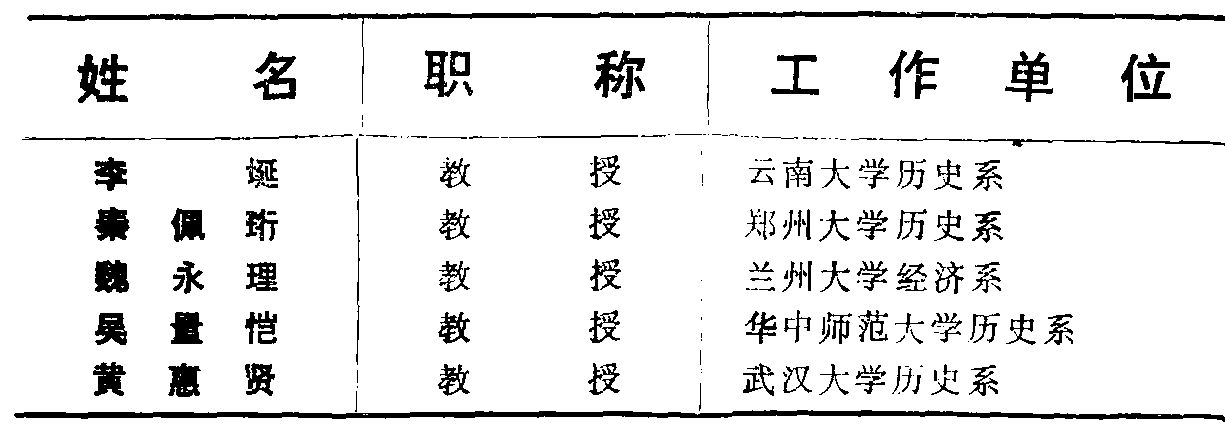 姓名 职称 工作单位
李埏 教授 云南大学历史系
秦佩珩 教授 郑州大学历史系
魏永理 教授 兰州大学经济系
吴量恺 教授 华中师范大学历史系
黄惠贤 教授 武汉大学历史系